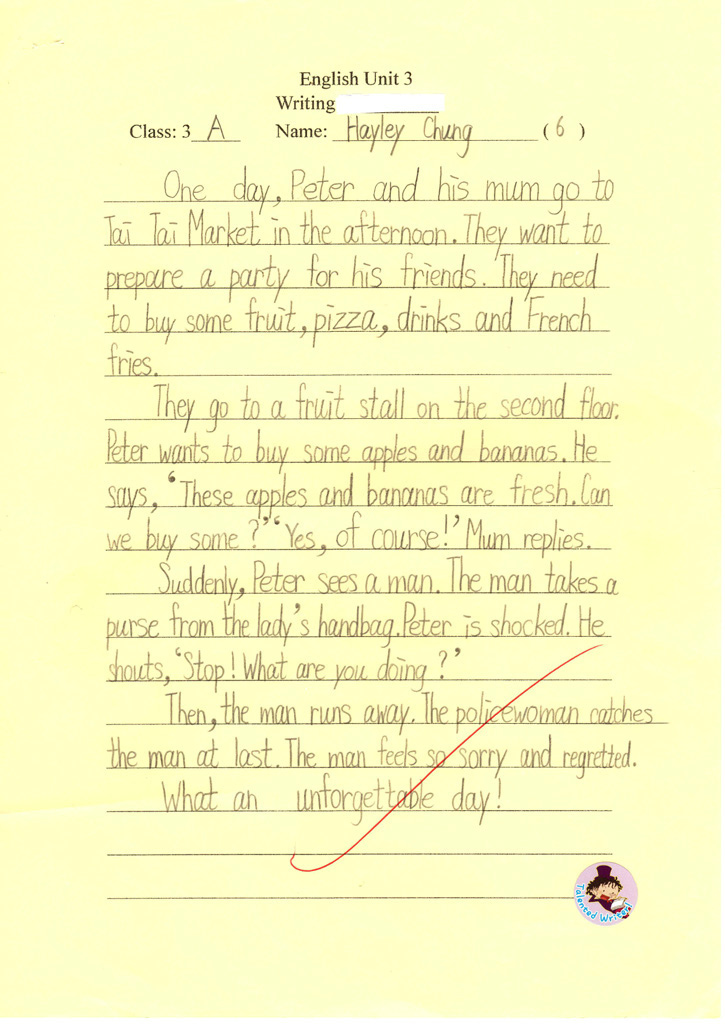 English Unit 3
Writing
Class: 3 A Name: Hayley Chung ( 6 )
One day, Peter and his mum go to
Tai Tai Market in the afternoon. They want to
prepare a party for his friends. They need
to buy some fruit, pizza, drinks and French
fries.
They go to a fruit stall on the second floor.
Peter wants to buy some apples and bananas. He
says, ‘These apples and bananas are fresh. Can
we buy some?’ ‘Yes, of course!’ Mum replies.
Suddenly, Peter sees a man. The man takes a
purse from the lady’s handbag. Peter is shocked. He
shouts, ‘Stop! What are you doing?’
Then, the man runs away. The policewoman catches
the man at last. The man feels so sorry and regretted.
What an unforgettable day!
Talented Writer!